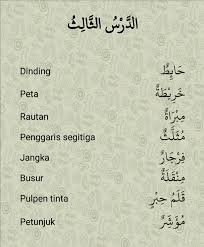 الدَّرْسُ الثَّالِثُ
Dinding حَابِطٌ
Peta خَرِيْطَةٌ
Rautan مِبْرَاةٌ
Penggaris segitiga مُثَلَّثٌ
Jangka فِرْجَارٌ
Busur مِنْقَلَةٌ
Pulpen tinta قَلَمُ حِبْرٍ
Petunjuk مُؤَشِّرٌ